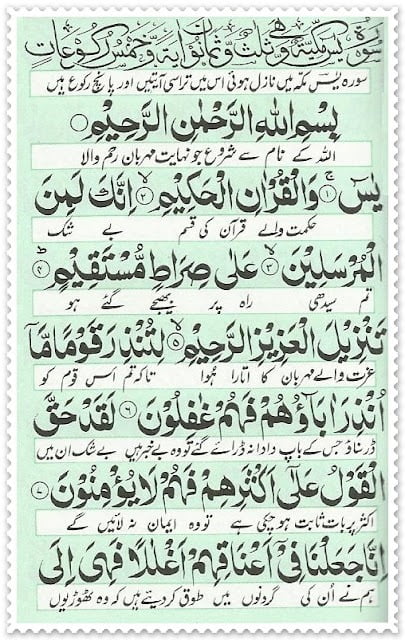 سورة يس مكية وهي ثلث وثمانون اية وخمس ركوعات
سورہ یٰسٓ مکہ میں نازل ہوئی اس میں تراسی آیتیں اور پانچ رکوع ہیں
بِسْمِ اللهِ الرَّحْمٰنِ الرَّحِيْمِ
اللہ کے نام سے شروع جو نہایت مہربان رحم والا
يٰسٓ ۚ﴿۱﴾ وَالْقُرْاٰنِ الْحَكِيْمِ ۙ﴿۲﴾ اِنَّكَ لَمِنَ
حکمت والے قرآن کی قسم بے شک
الْمُرْسَلِيْنَ ۙ﴿۳﴾ عَلٰى صِرَاطٍ مُّسْتَقِيْمٍ ؕ﴿۴﴾
تم سیدھی راہ پر بھیجے گئے ہو
تَنْزِيْلَ الْعَزِيْزِ الرَّحِيْمِ ۙ﴿۵﴾ لِتُنْذِرَ قَوْمًا مَّاۤ
عزت والے مہربان کا اتارا ہوا تاکہ تم اس قوم کو
اُنْذِرَ اٰبَآؤُهُمْ فَهُمْ غٰفِلُوْنَ ﴿۶﴾ لَقَدْ حَقَّ
ڈر سناؤ جس کے باپ دادا نہ ڈرائے گئے تو وہ بے خبر ہیں بے شک ان میں
الْقَوْلُ عَلٰۤى اَكْثَرِهِمْ فَهُمْ لَا يُؤْمِنُوْنَ ﴿۷﴾
اکثر پر بات ثابت ہو چکی ہے تو وہ ایمان نہ لائیں گے
اِنَّا جَعَلْنَا فِيْۤ اَعْنَاقِهِمْ اَغْلٰلًا فَهِيَ اِلَى
ہم نے اُن کی گردنوں میں طوق کردیئے ہیں کہ وہ ٹھوڑیوں